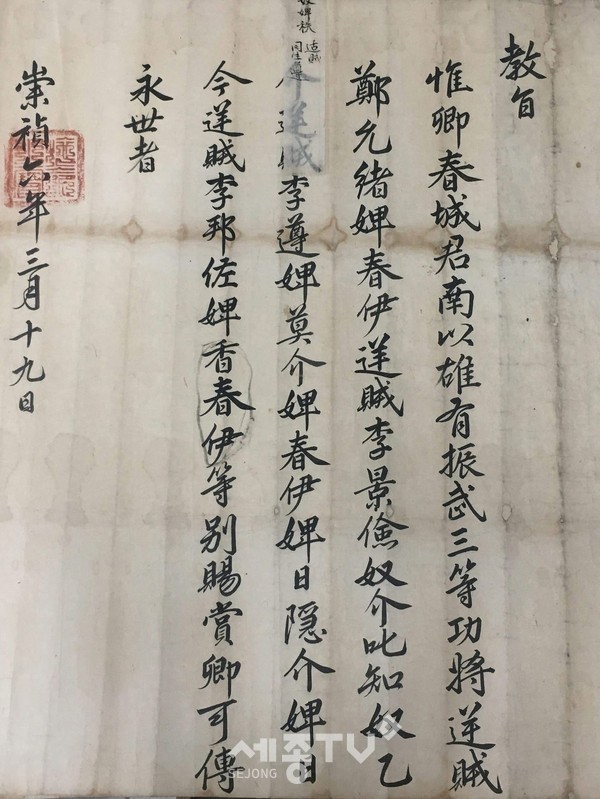 敎旨
惟卿春城君南以雄有振武三等功將逆賊
鄭允緖婢春伊逆賊李景儉奴介叱知奴乙
今逆賊李遵婢莫介婢春伊婢日隱介婢日
今逆賊李邦佐婢香春伊等別賜賞卿可傳
永世者
崇禎六年三月十九日
세종TV
SEJONG